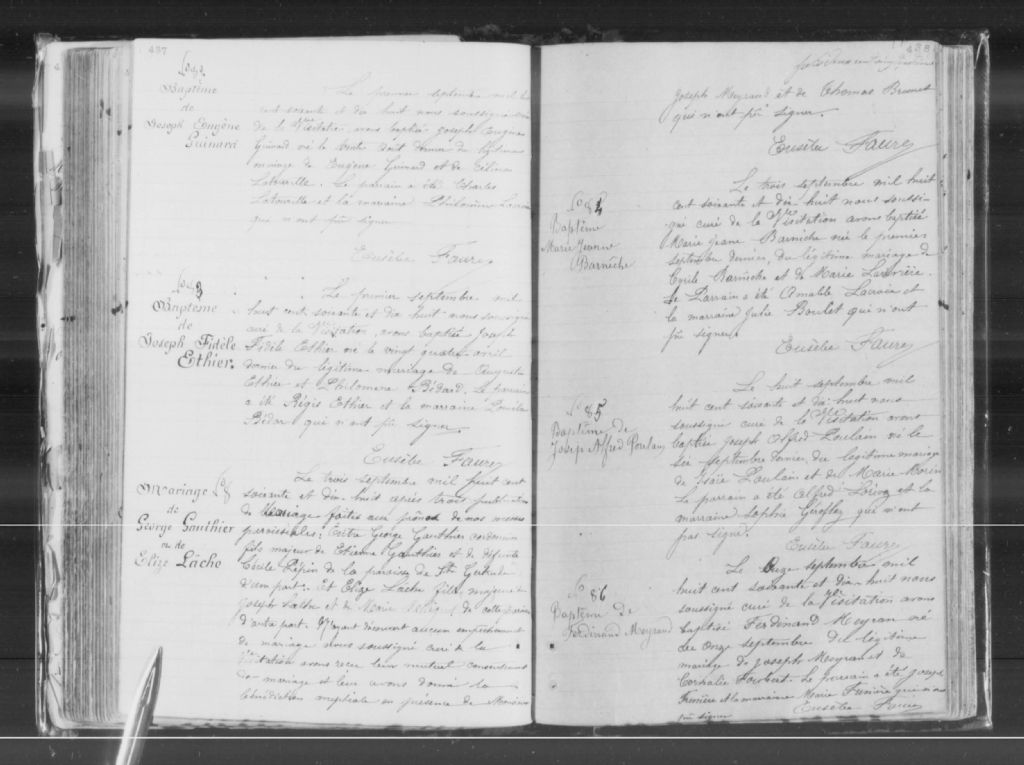 437
Baptême
de
Joseph Eugène
Guinard
Le premier septembre mil
cent soixante et dix huit nous soussigné
de la Vtion Visitation avons baptisé Joseph Eugène
Guinard né le trente Août dernier du légitime
mariage de Eugène Guinard et de
Latouville. Le parrain a été Charles
Latouville et la marraine Philomène
qui n'ont pu signer
Eusèbe Faure
No 83
Bapteme
de
Joseph Fidèle
Ethier.
Le premier septembre mil
huit cent soixante et dix huit nous soussigné
curé de la Visitation, avons baptisé Joseph
Fidèle Ethier né le vingt quatre avril
dernier du légitime mariage de Auguste
Ethier et Philomene Bédard. Le parrain
a été Régis Ethier et la marraine
Bédard qui n'ont pu signer.
Eusèbe Faure
Mariage No 8
de
George Gauthier
et de
Elize Lâche
Le trois septembre mil huit cent
soixante et dix huit après trois publication
de mariage faites aux prônes de nos messes
paroissiales; Entre George Gauthier cordonnier
fils majeur de Etienne Gauthier et de défunte
Cécile Pépin de la paroisse de Ste Gertrude
d'une part; et Elize Lâche fille majeure de
Joseph Lâche et de Marie de cette paroisse
d'autre part. N'ayant découvert aucun empêchement
de mariage nous soussigné curé de la
Visitation avons reçu leur mutuel consentement
de mariage et leur avons donné la
bénédiction nuptiale en présence de Moïse
438
Joseph Meyrand et de Thomas Brunet
qui n'ont pu signer.
Eusèbe Faure
No 84
Baptême
Marie Jeanne
Barnêche
Le trois septembre mil huit
cent soixante et dix huit nous soussi-
gné curé de la Visitation avons baptisé
Marie Jeane Barnèche née le premier
septembre dernier, du légitime mariage de
Cyrile Barnêche et de Marie Larivière.
Le Parrain a été Amable Lacroix et
la marraine Julie Boulet qui n'ont
pu signer.
Eusèbe Faure
No 85
Baptême de
Josep Alfred Poulain
Le huit septembre mil
huit cent soixante et dix huit nous
soussigné curé de la Visitation avons
baptisé Joseph Alfred Poulain né le
six septembre dernier, du légitime mariage
de Isaïe Poulain et de Marie Morin
Le parrain a été Alfred et la
marraine Sophie qui n'ont
pas signé.
Eusèbe Faure
No 86
Baptême de
Ferdinand Meyrand
Le Onze septembre mil
huit cent soixante et dix huit nous
soussigné curé de la Visitation avons
baptisé Ferdinand Meyran né
le onze septembre du légitime
mariage de Joseph Meyran et de
Corhalie Joubert. Le parrain a été Joseph
Frenière et la marraine Marie Frenière qui n'ont
pu signer
Eusèbe Faure